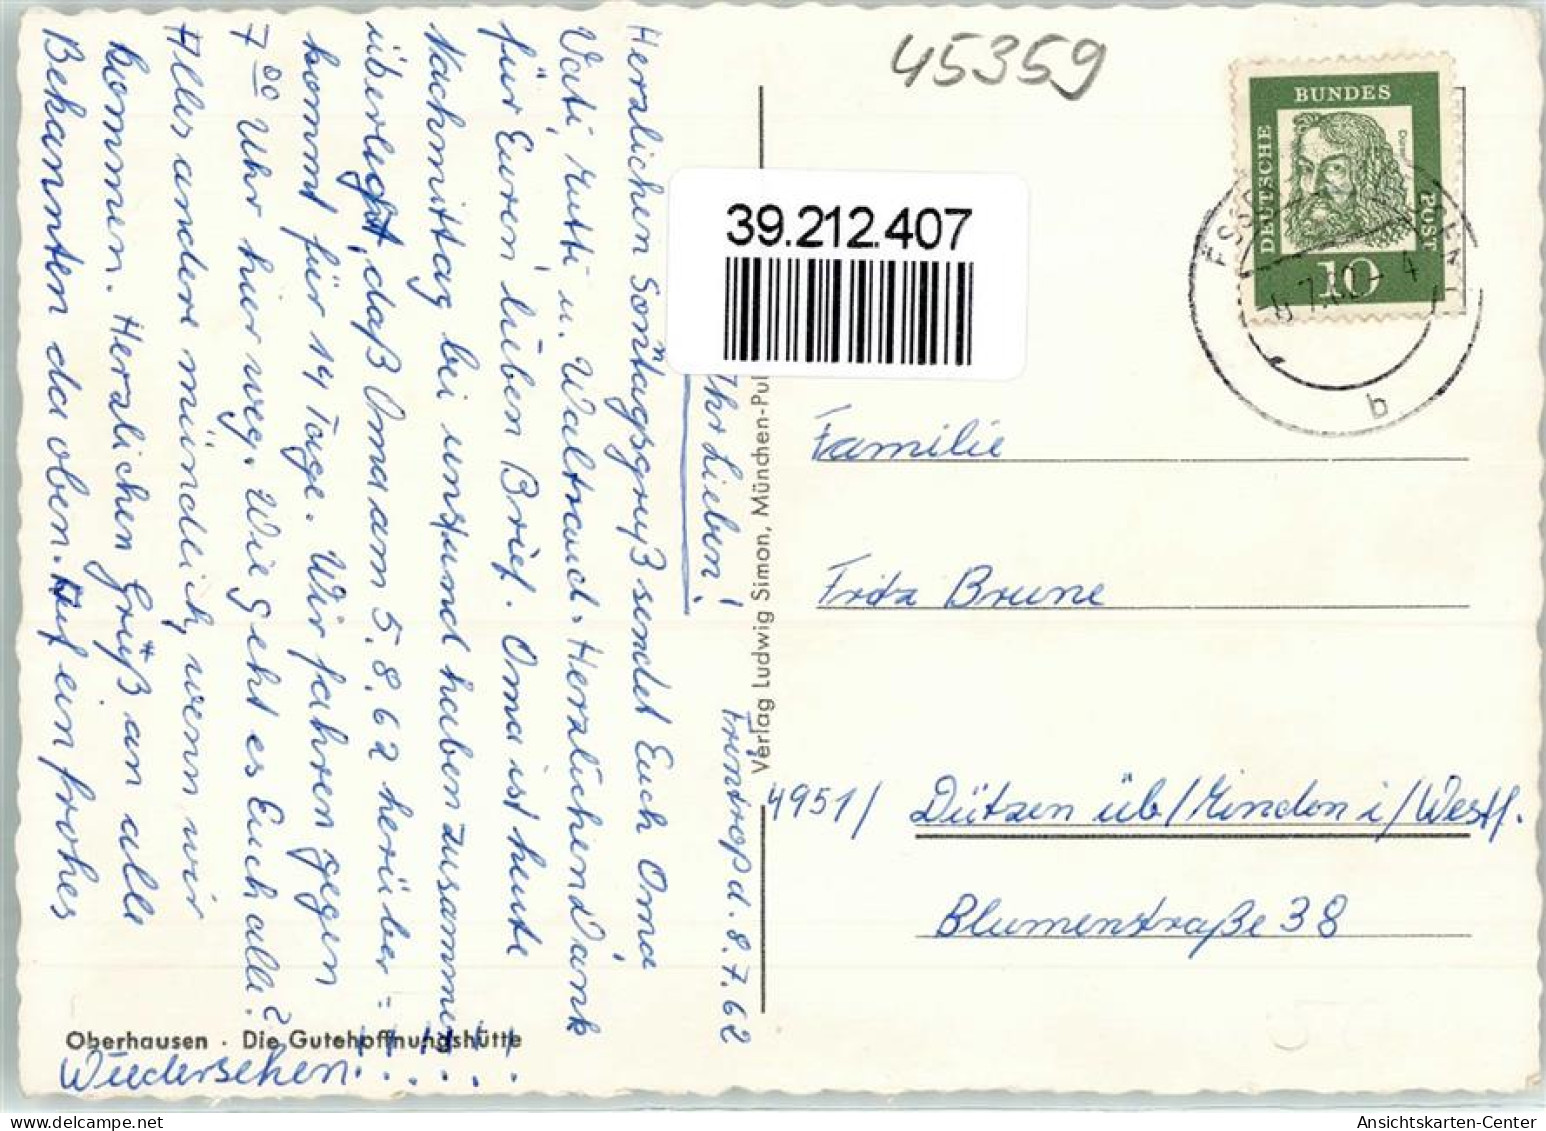 45359
BUNDES
DEUTSCHE
POST
10
b
39.212.407
Frintrop d. 8.7.62
Ihr Lieben!
Herzlichen Sontagsgruß sendet Euch Oma
n
Vati, Mutti u. Waltraud. Herzlichen Dank
für Euren lieben Brief. Oma ist heute
Nachmittag bei uns und haben zusammen
überlegt, daß Oma am 5.8.62 herüber =
kommt für 14 Tage. Wir fahren gegen
7 00 Uhr hier weg. Wie geht es Euch alle?
Alles andere mündlich, wenn wir
kommen. Herzlichen Gruß an alle
Bekannten da oben. Auf ein frohes
Wiedersehen
Oberhausen · Die Gutehoffnungshütte
Verlag Ludwig Simon, München-Pul
Familie
Fritz Brune
4951/ Dützen üb/Minden i/Westf.
Blumenstraße 38
Ansichtskarten-Center
www.delcampe.net